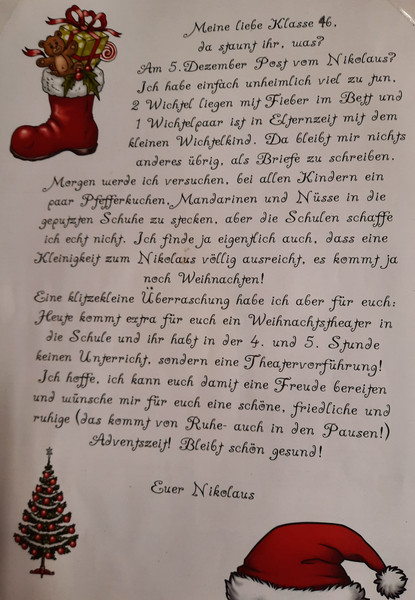 Meine liebe Klasse 4b,
da staunt ihr, was?
Am 5.Dezember Post vom Nikolaus?
Ich habe einfach unheimlich viel zu tun,
2 Wichtel liegen mit Fieber im Bett und
1 Wichtelpaar ist in Elternzeit mit dem
kleinen Wichtelkind. Da bleibt mir nichts
anderes übrig, als Briefe zu schreiben.
Morgen werde ich versuchen, bei allen Kindern ein
paar Pfefferkuchen, Mandarinen und Nüsse in die
geputzten Schuhe zu stecken, aber die Schulen schaffe
ich echt nicht. Ich finde ja eigentlich auch, dass eine
Kleinigkeit zum Nikolaus völlig ausreicht, es kommt ja
noch Weihnachten!
Eine klitzekleine Überraschung habe ich aber für euch:
Heute kommt extra für euch ein Weihnachtstheater in
die Schule und ihr habt in der 4. und 5. Stunde
keinen Unterricht, sondern eine Theatervorführung!
Ich hoffe, ich kann euch damit eine Freude bereiten
und wünsche mir für euch eine schöne, friedliche und
ruhige (das kommt von Ruhe- auch in den Pausen!)
Adventszeit! Bleibt schön gesund!
Euer Nikolaus